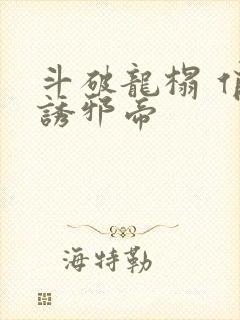 斗破龍榻
誘邪帝
海特勒